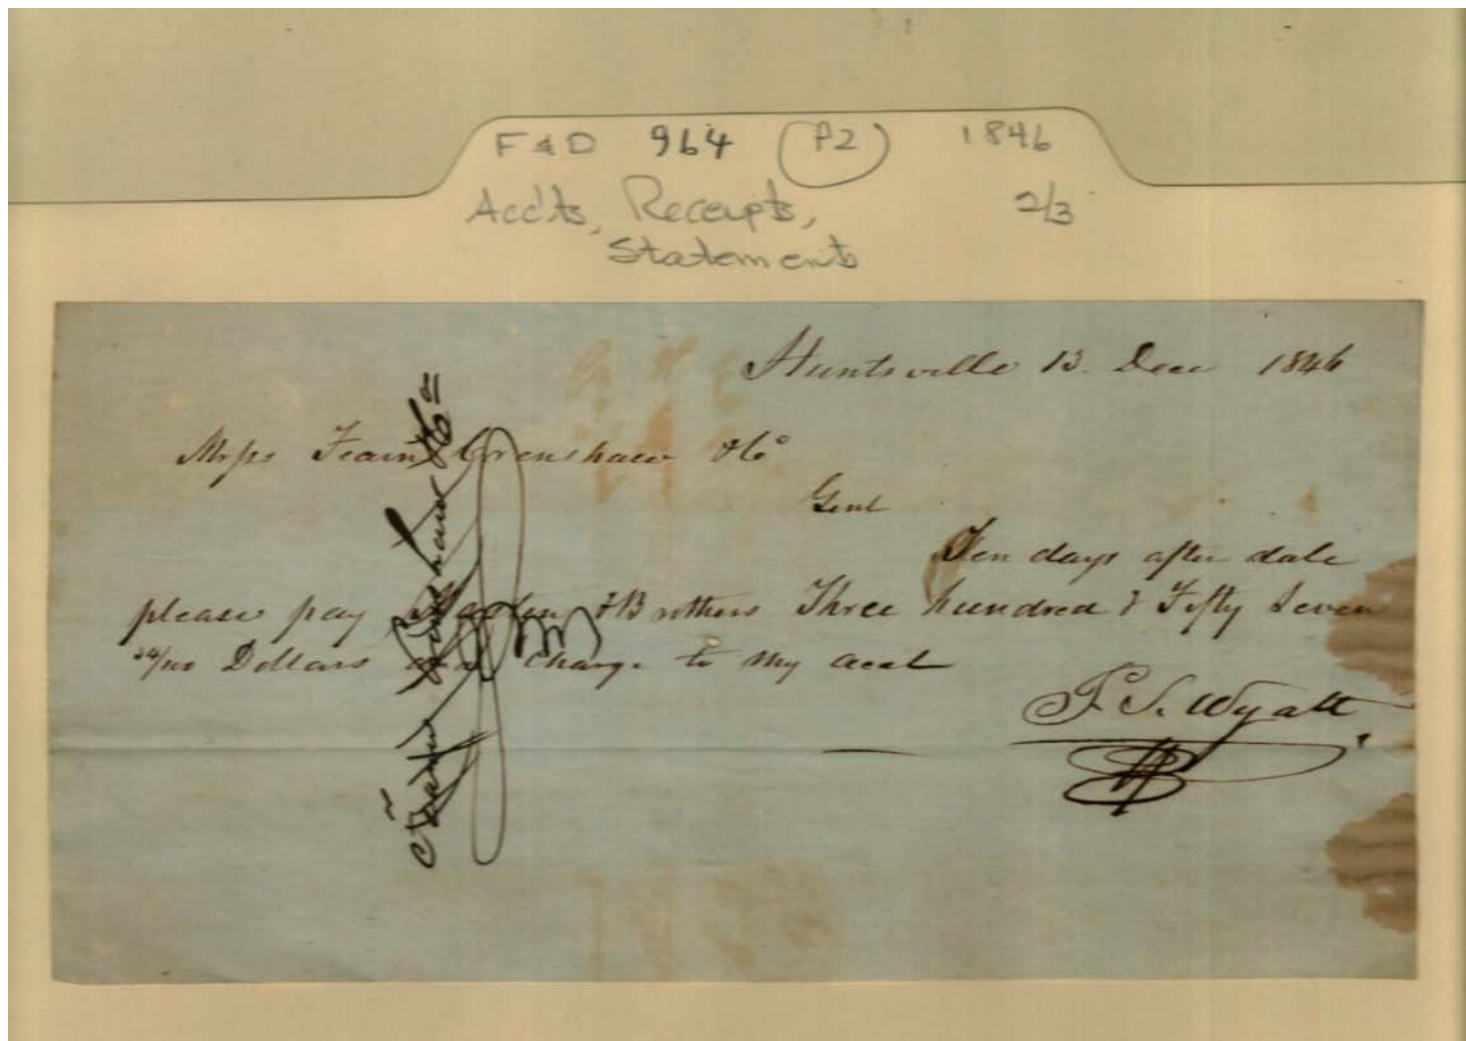 F & D 964 (P2) 1846
Acc'ts, Receipts, 2/3
Statements
Huntsville 13. Dec 1846
Messrs Fearn Crenshaw & Co
Gent
Ten days after date
please pay & Brothers Three hundred & Fifty Seven
/100 Dollars and charge to my acct
T. S. Wyatt
Crenshaw & Co